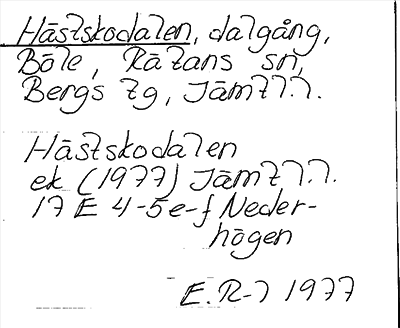 Hästskodalen, dalgång,
Böle, Rätans sn,
Bergs tg, Jämtl.l.
Hästskodalen
ek (1977) Jämtl.l.
17 E 4-5e-f Neder-
högen
E.R-l 1977